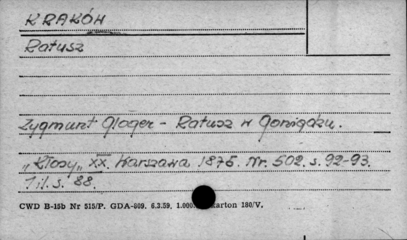 KRAKÓW
Ratusz
Zygmunt Gloger - Ratusz w Goniądzu.
„Kłosy„ XX. Warszawa 1875. Nr. 502. s. 92-93.
1 il. s. 88.
CWD B-15b Nr 515/P. GDA-609. 6.3.59. 1.000 karton 180/V.